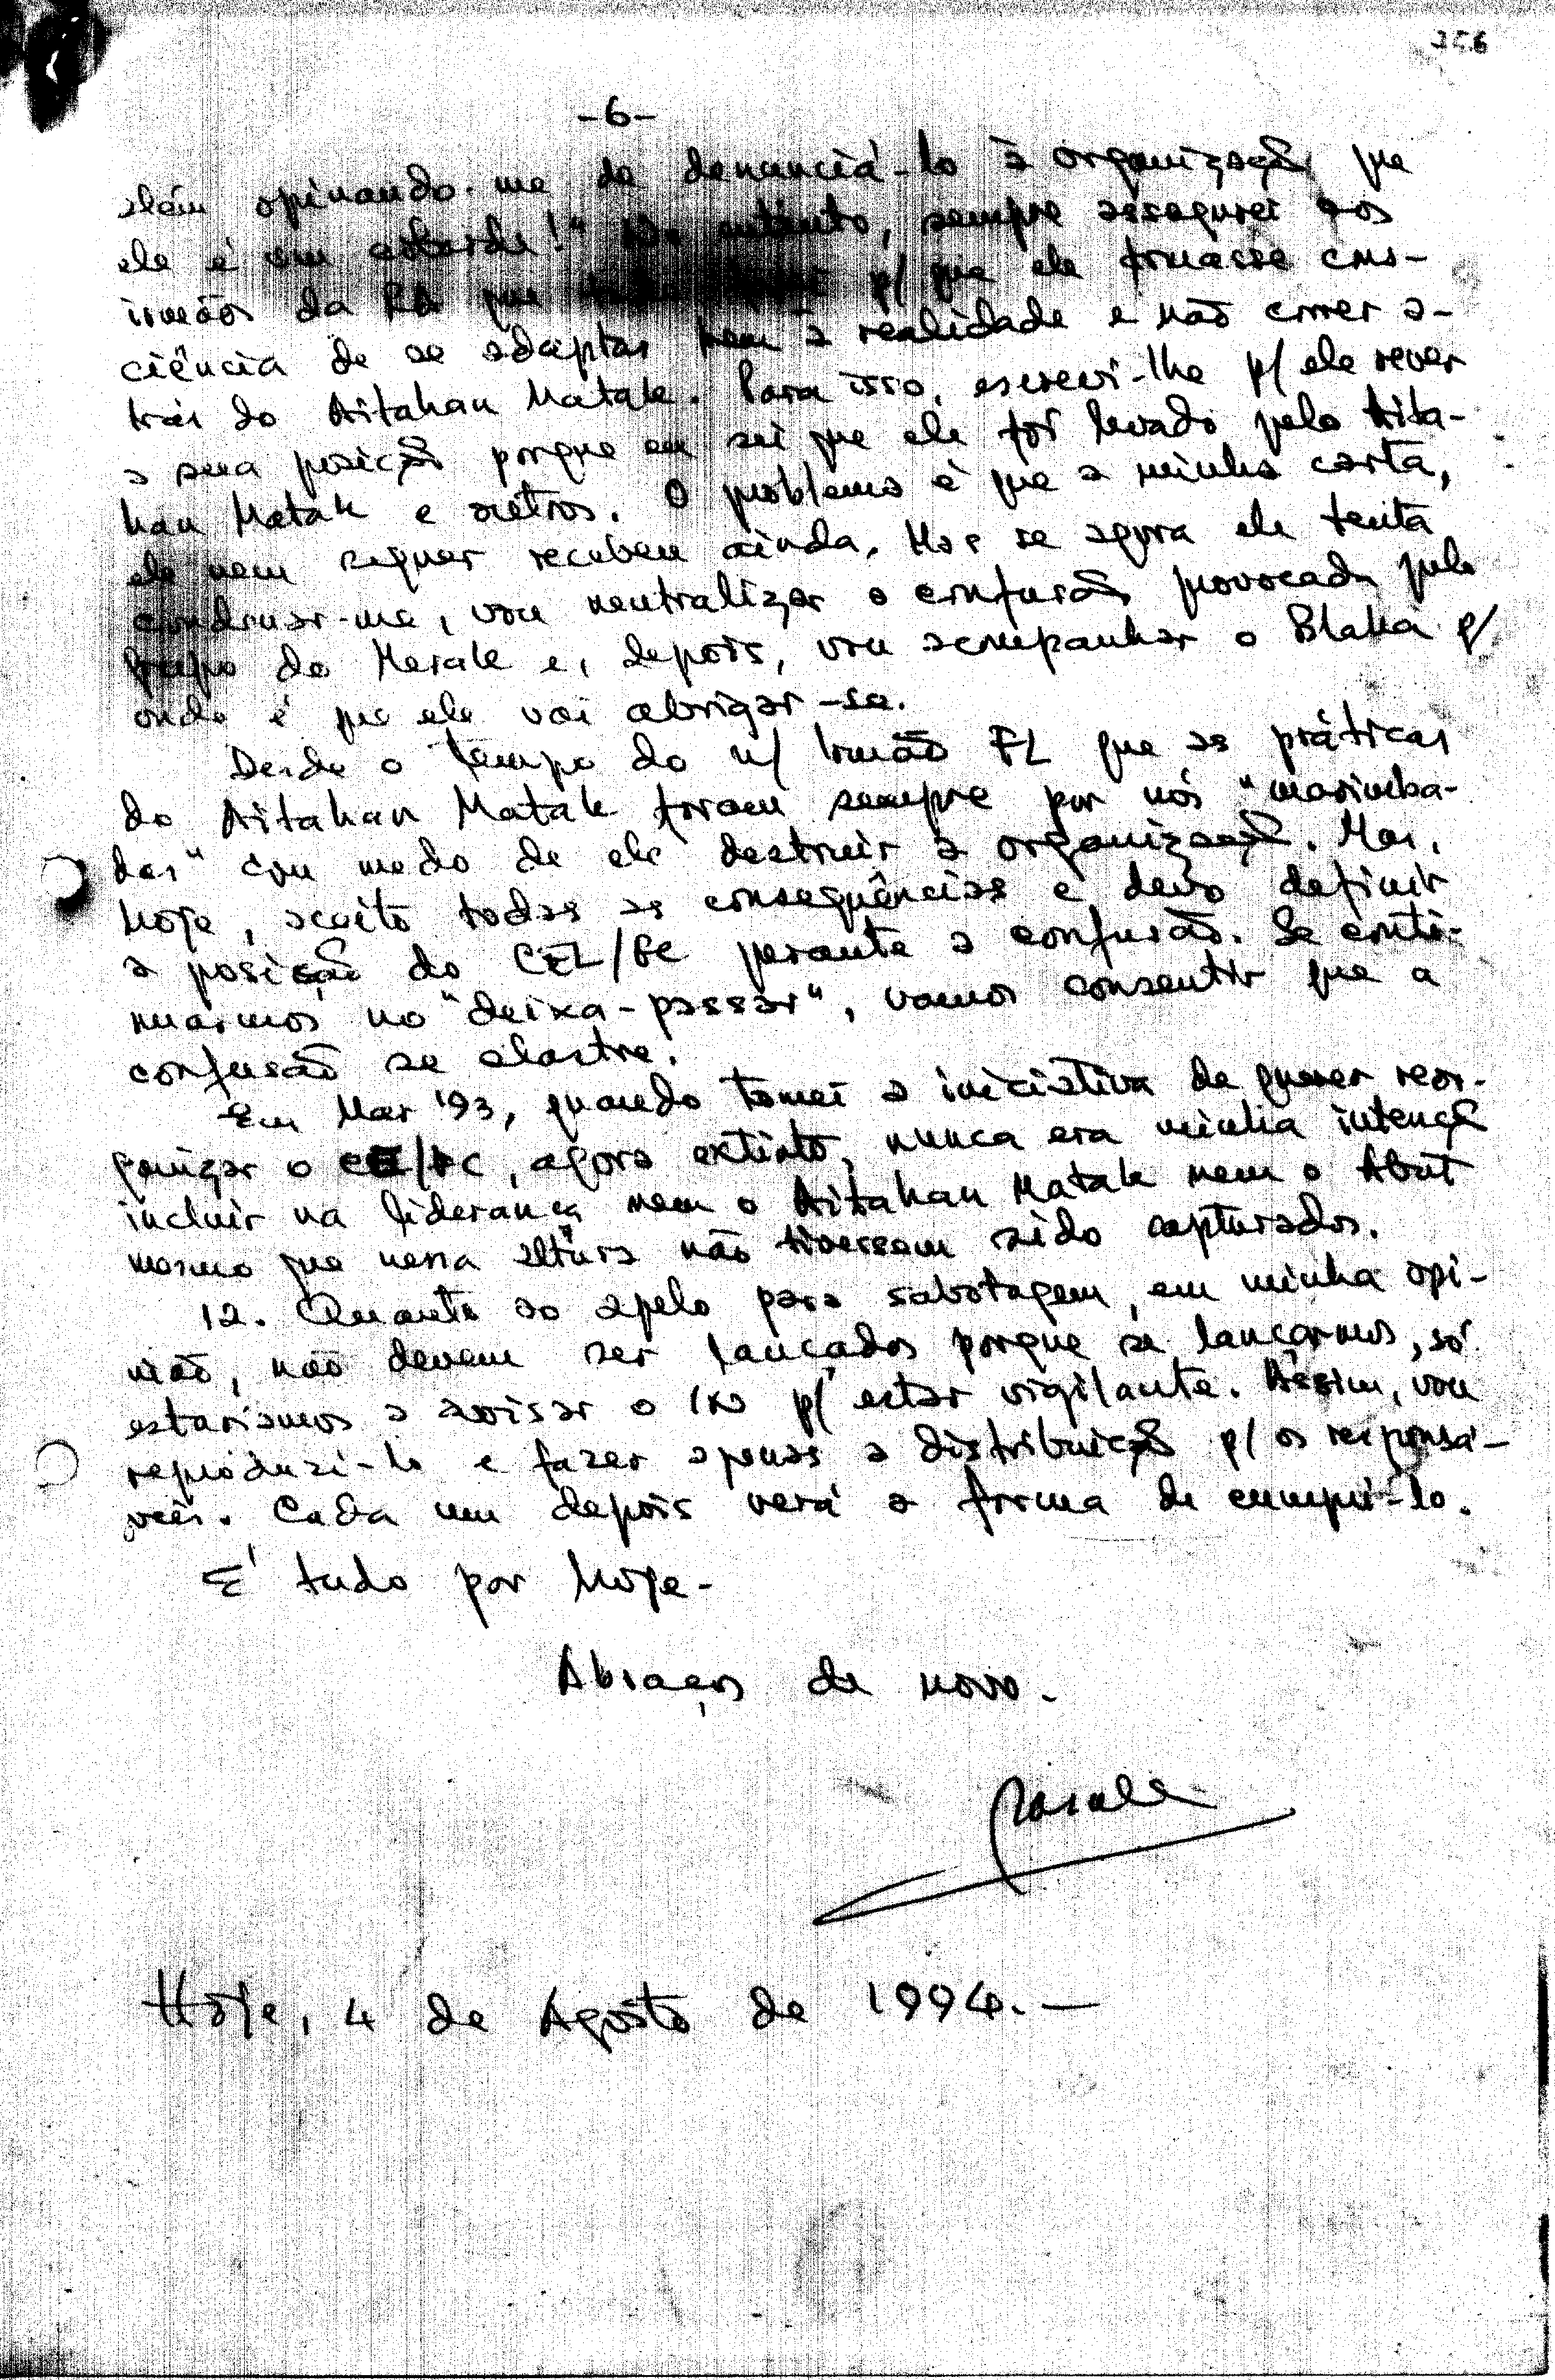 -6-
além opinando-me de denunciá-lo à organização que
ele é um cobarde!" No entanto, sempre assegurei aos
irmãos da que p/ que ele tomasse cons-
ciência de se adaptar bem à realidade e não correr a-
trás do Aitahan Matak. Para isso, escrevi-lhe p/ ele rever
a sua posição porque eu sei que ele foi levado pelo Aita-
han Matak e outros. O problema é que a minha carta,
ele nem sequer recebeu ainda. Mas se agora ele tenta
condenar-me, vou neutralizar a confusão provocada pelo
grupo do e, depois, vou acompanhar o p/
onde é que ele vai abrigar-se.
Desde o tempo do n/ Irmão FL que as práticas
do Aitahan Matak foram sempre por nós "marimba-
das" com medo de ele destruir a organização. Mas,
hoje, aceito todas as consequências e devo definir
a posição do CEL/FC perante a confusão. Se conti-
nuarmos no "deixa-passar", vamos consentir que a
confusão se alastre.
Em Mar '93, quando tomei a iniciativa de querer reor-
ganizar o agora extinto, nunca era minha intenção
incluir na liderança nem o Aitahan Matak nem o Abut
mesmo que nessa altura não tivessem sido capturados.
12. Quanto ao apelo para sabotagem, em minha opi-
nião, não devem ser lançados porque se lançarmos, só
estaríamos a avisar o IN p/ estar vigilante. Assim, vou
reproduzi-lo e fazer apenas a distribuição p/ os responsá-
veis. Cada um depois verá a forma de cumpri-lo.
É tudo por hoje-
Abraços de novo.
Hoje, 4 de Agosto de 1994.-